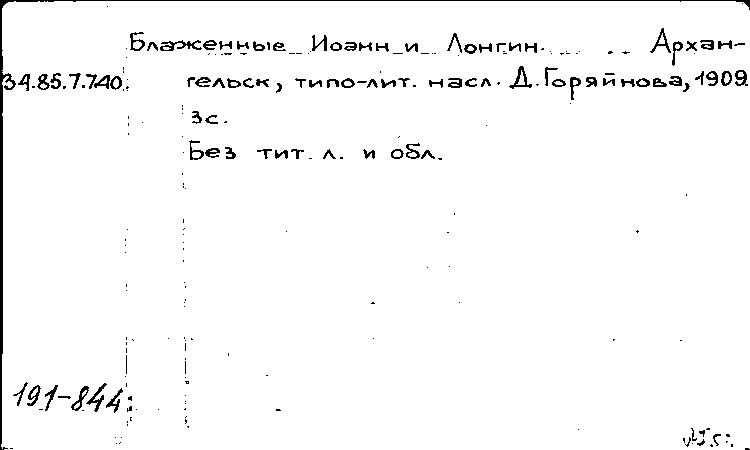 Блаженные Иоанн и Лонгин. Архан-
34.85.7.740 гельск, типо-лит. насл. Д. Горяйнова, 1909
3с.
Без тит. л. и обл.
191-844